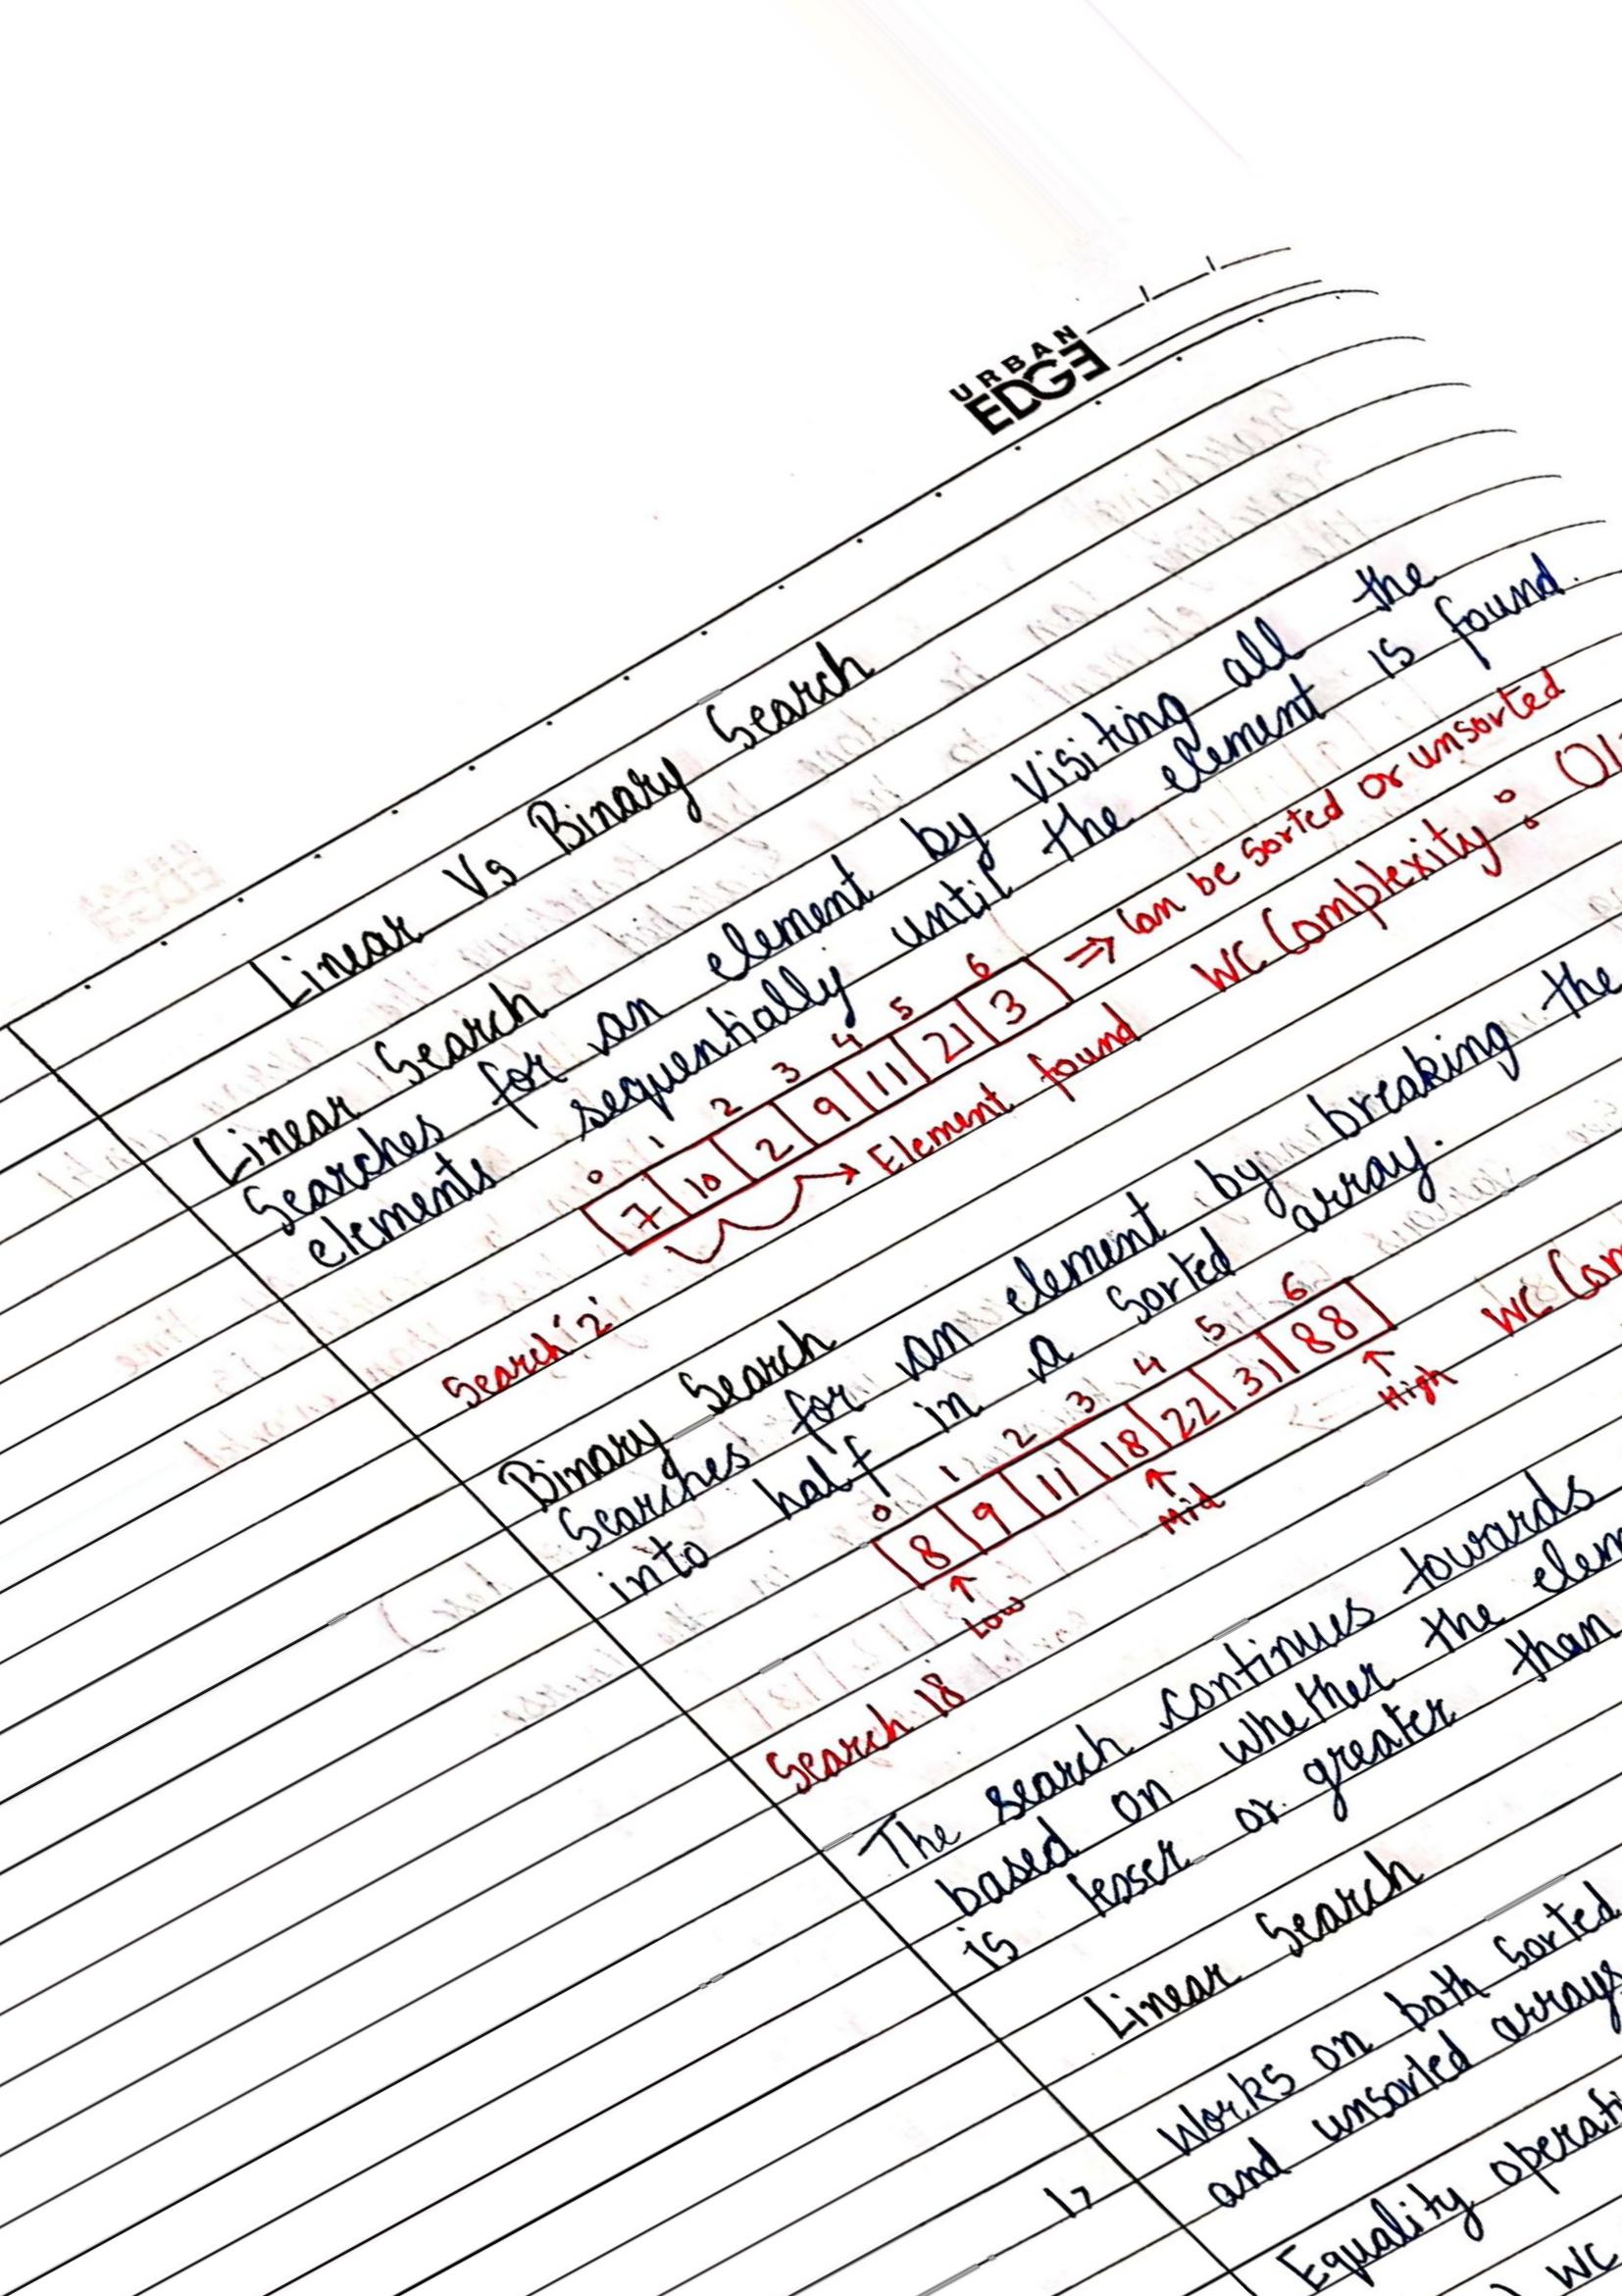 URBAN
EDGE
Linear Vs Binary Search
Linear Search
Searches for an element by visiting all the
elements sequentially until the element is found.
0 1 2 3 4 5 6
7 10 2 9 11 21 3 ⇒ Can be sorted or unsorted
Search '2' → Element found WC Complexity : O(
Binary Search
Searches for an element by breaking the
into half in a sorted array.
0 1 2 3 4 5 6
8 9 11 18 22 31 88
↑ Low ↑ Mid ↑ High
Search 18 WC Com
The search continues towards
based on whether the elem
is lesser or greater than
Linear Search
Works on both sorted
and unsorted arrays
Equality operati
WC